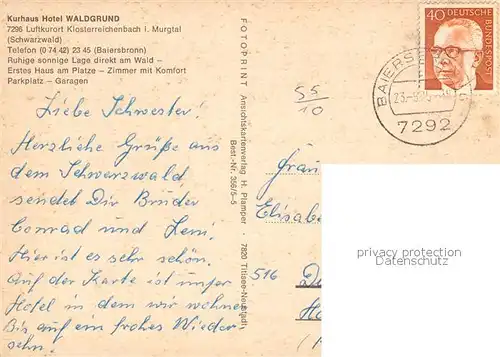 Kurhaus Hotel WALDGRUND
7296 Luftkurort Klosterreichenbach i. Murgtal
(Schwarzwald)
Telefon (0 74 42) 23 45 (Baiersbronn)
Ruhige sonnige Lage direkt am Wald –
Erstes Haus am Platze – Zimmer mit Komfort
Parkplatz – Garagen
Liebe Schwester!
Herzliche Grüße aus
dem Schwarzwald
sendet Dir Bruder
Conrad und Leni.
Hier ist es sehr schön.
Auf der Karte ist unser
Hotel in dem wir wohnen
Bis auf ein frohes Wieder
sehn.
FOTOPRINT Ansichtskartenverlag H. Plamper · 7820 Titisee-Neustadt
Best.-Nr. 356/5-5
55
10
40 DEUTSCHE BUNDESPOST
7292
Frau
Elisa
516
privacy protection
Datenschutz